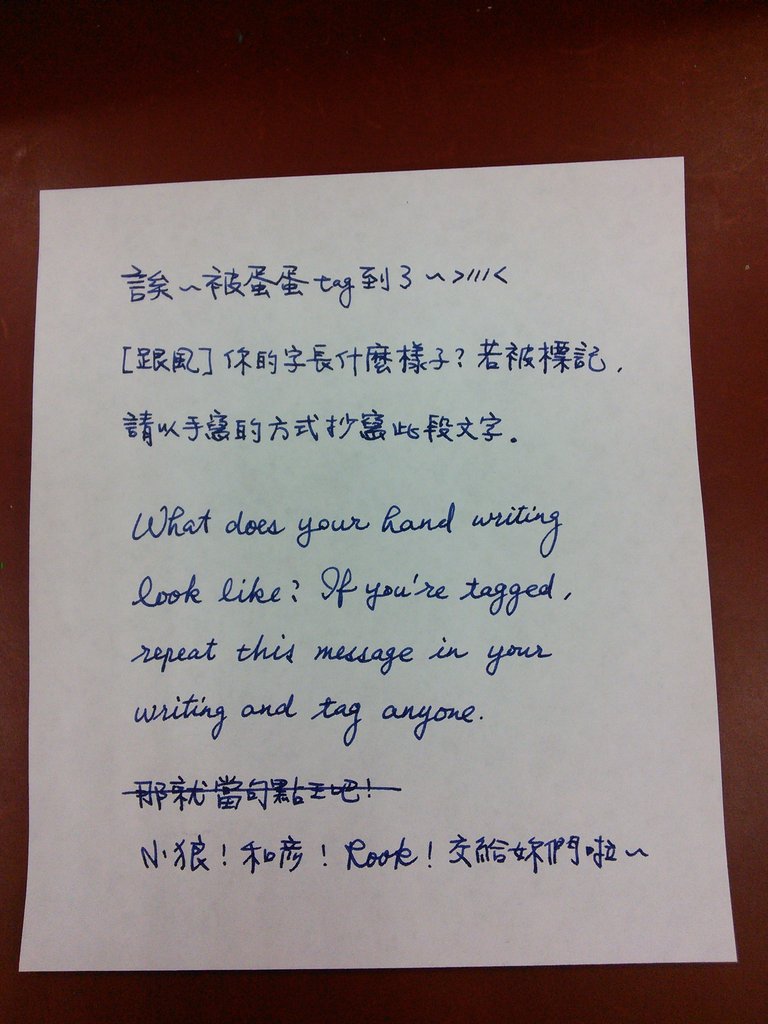 誒～被蛋蛋tag到3～>///<
[跟風]你的字長什麼樣子?若被標記,
請以手寫的方式抄寫此段文字。
What does your hand writing
look like? If you're tagged,
repeat this message in your
writing and tag anyone.
那就當句點王吧!
小狼!和彥!Rook!交給妳們啦～